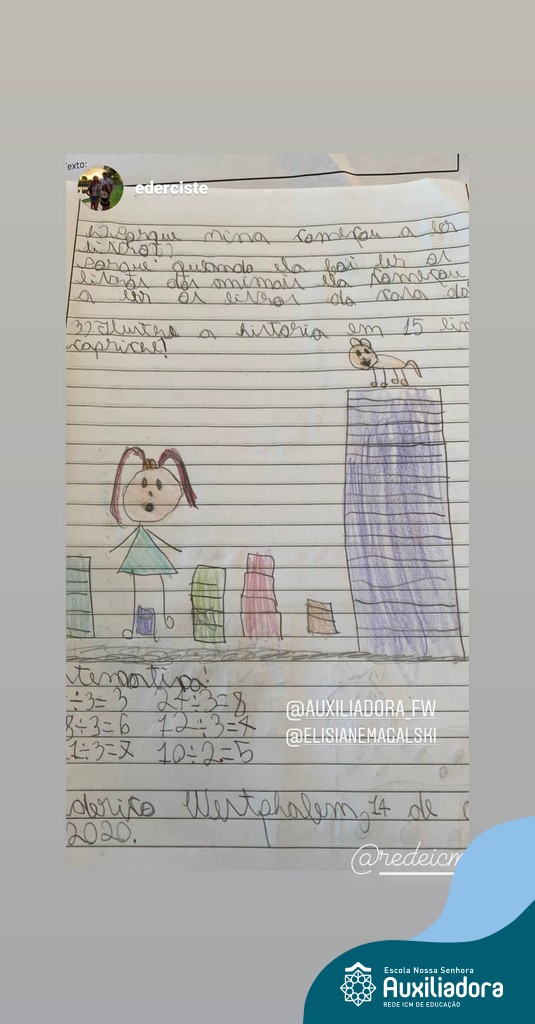 exto:
ederciste
2) Porque nina começou a ler
livros??
Porque quando ela foi ler os
livros dos animais ela começou
a ler os livros da casa da
3) Ilustre a historia em 15 lin
caprixe!
÷3=3 24÷3=8
÷3=6 12÷3=4
1÷3=7 10÷2=5
@AUXILIADORA_FW
@ELISIANEMAGALSKI
derico Westphalem, 14 de
2020.
@redeicm
Escola Nossa Senhora
Auxiliadora
REDE ICM DE EDUCAÇÃO